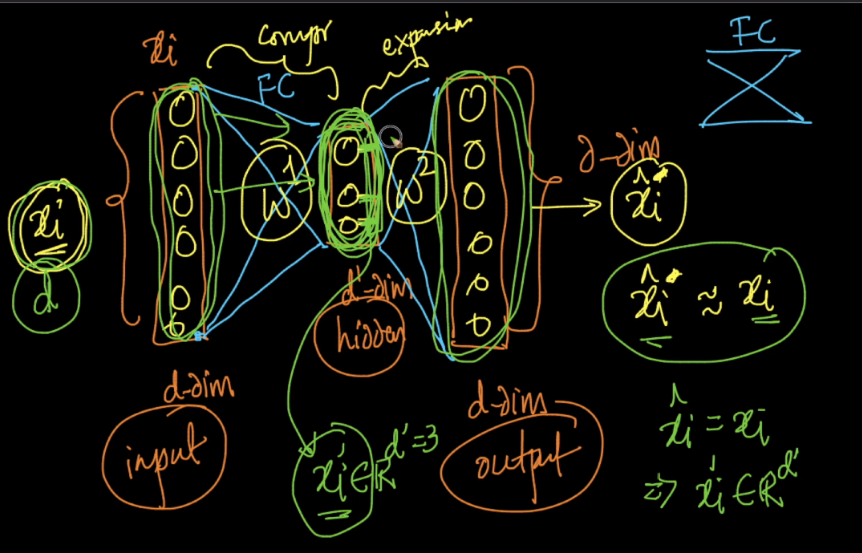 xi
compr
expansion
FC
FC
xi
d
W¹
W²
d-dim
x̂i
x̂i ≈ xi
d'-dim
hidden
d-dim
input
xi' ∈ ℝ^d'=3
d-dim
output
x̂i = xi
⇒ xi' ∈ ℝ^d'